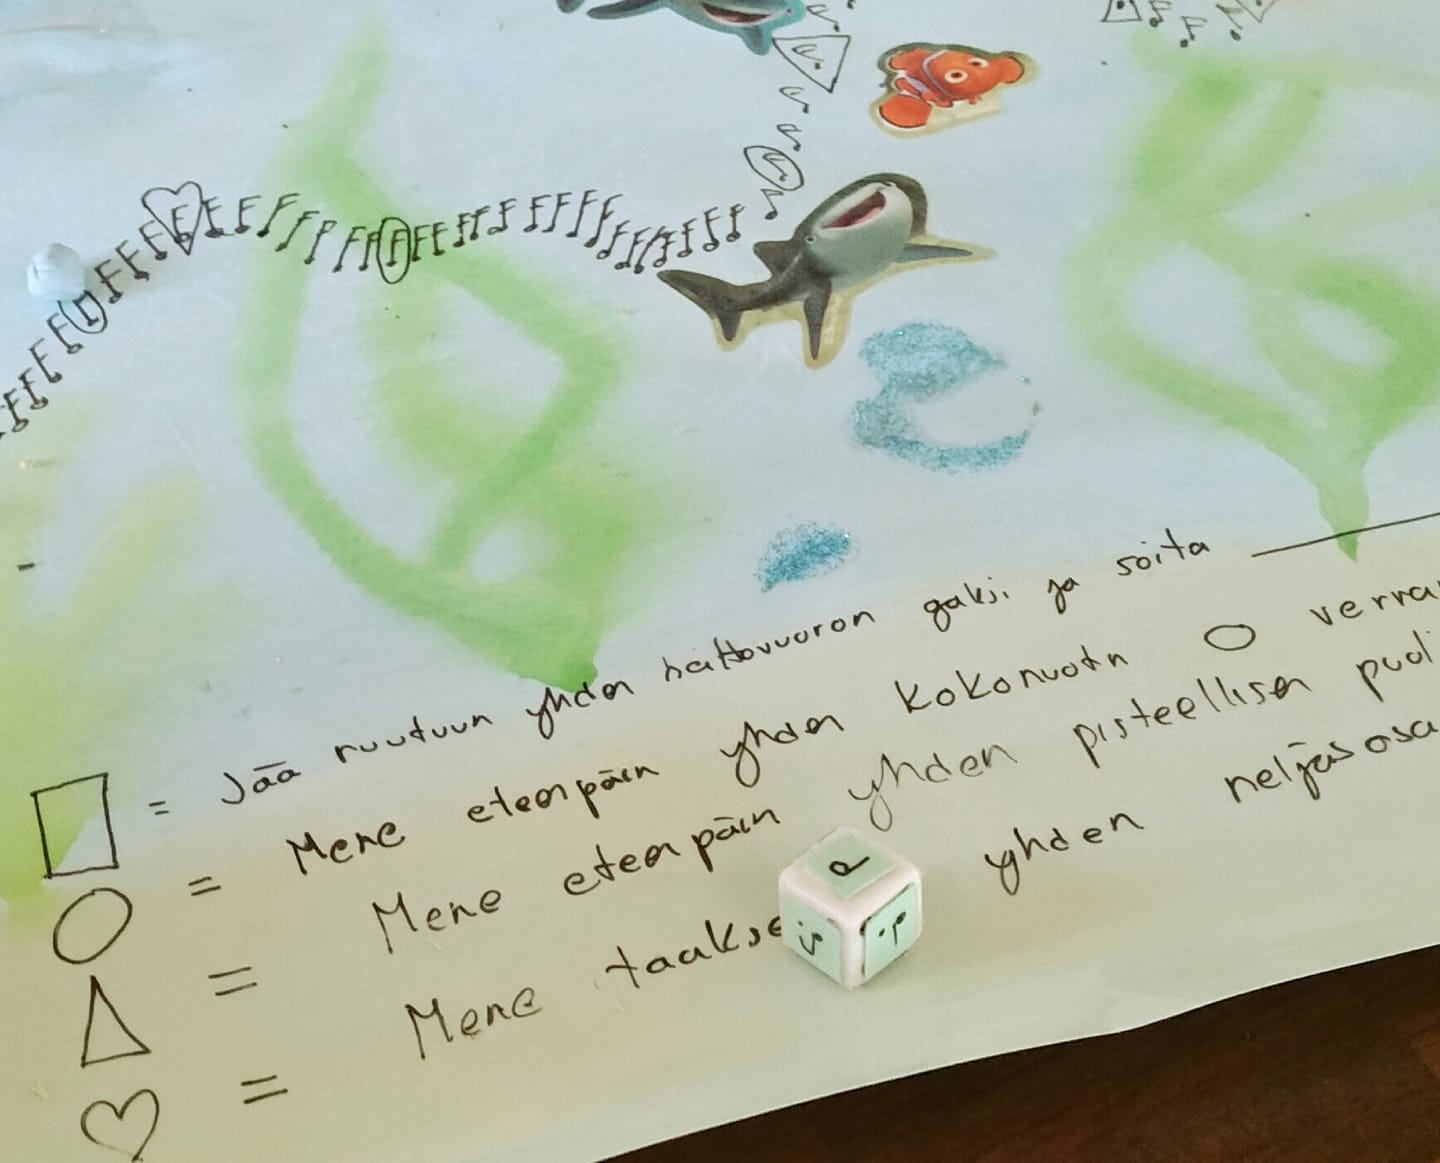 = Jää ruutuun yhden heittovuoron ajaksi ja soita
= Mene eteenpäin yhden kokonuotn verran
= Mene eteenpäin yhden pisteellisen puoli
= Mene taakse yhden neljäsosa